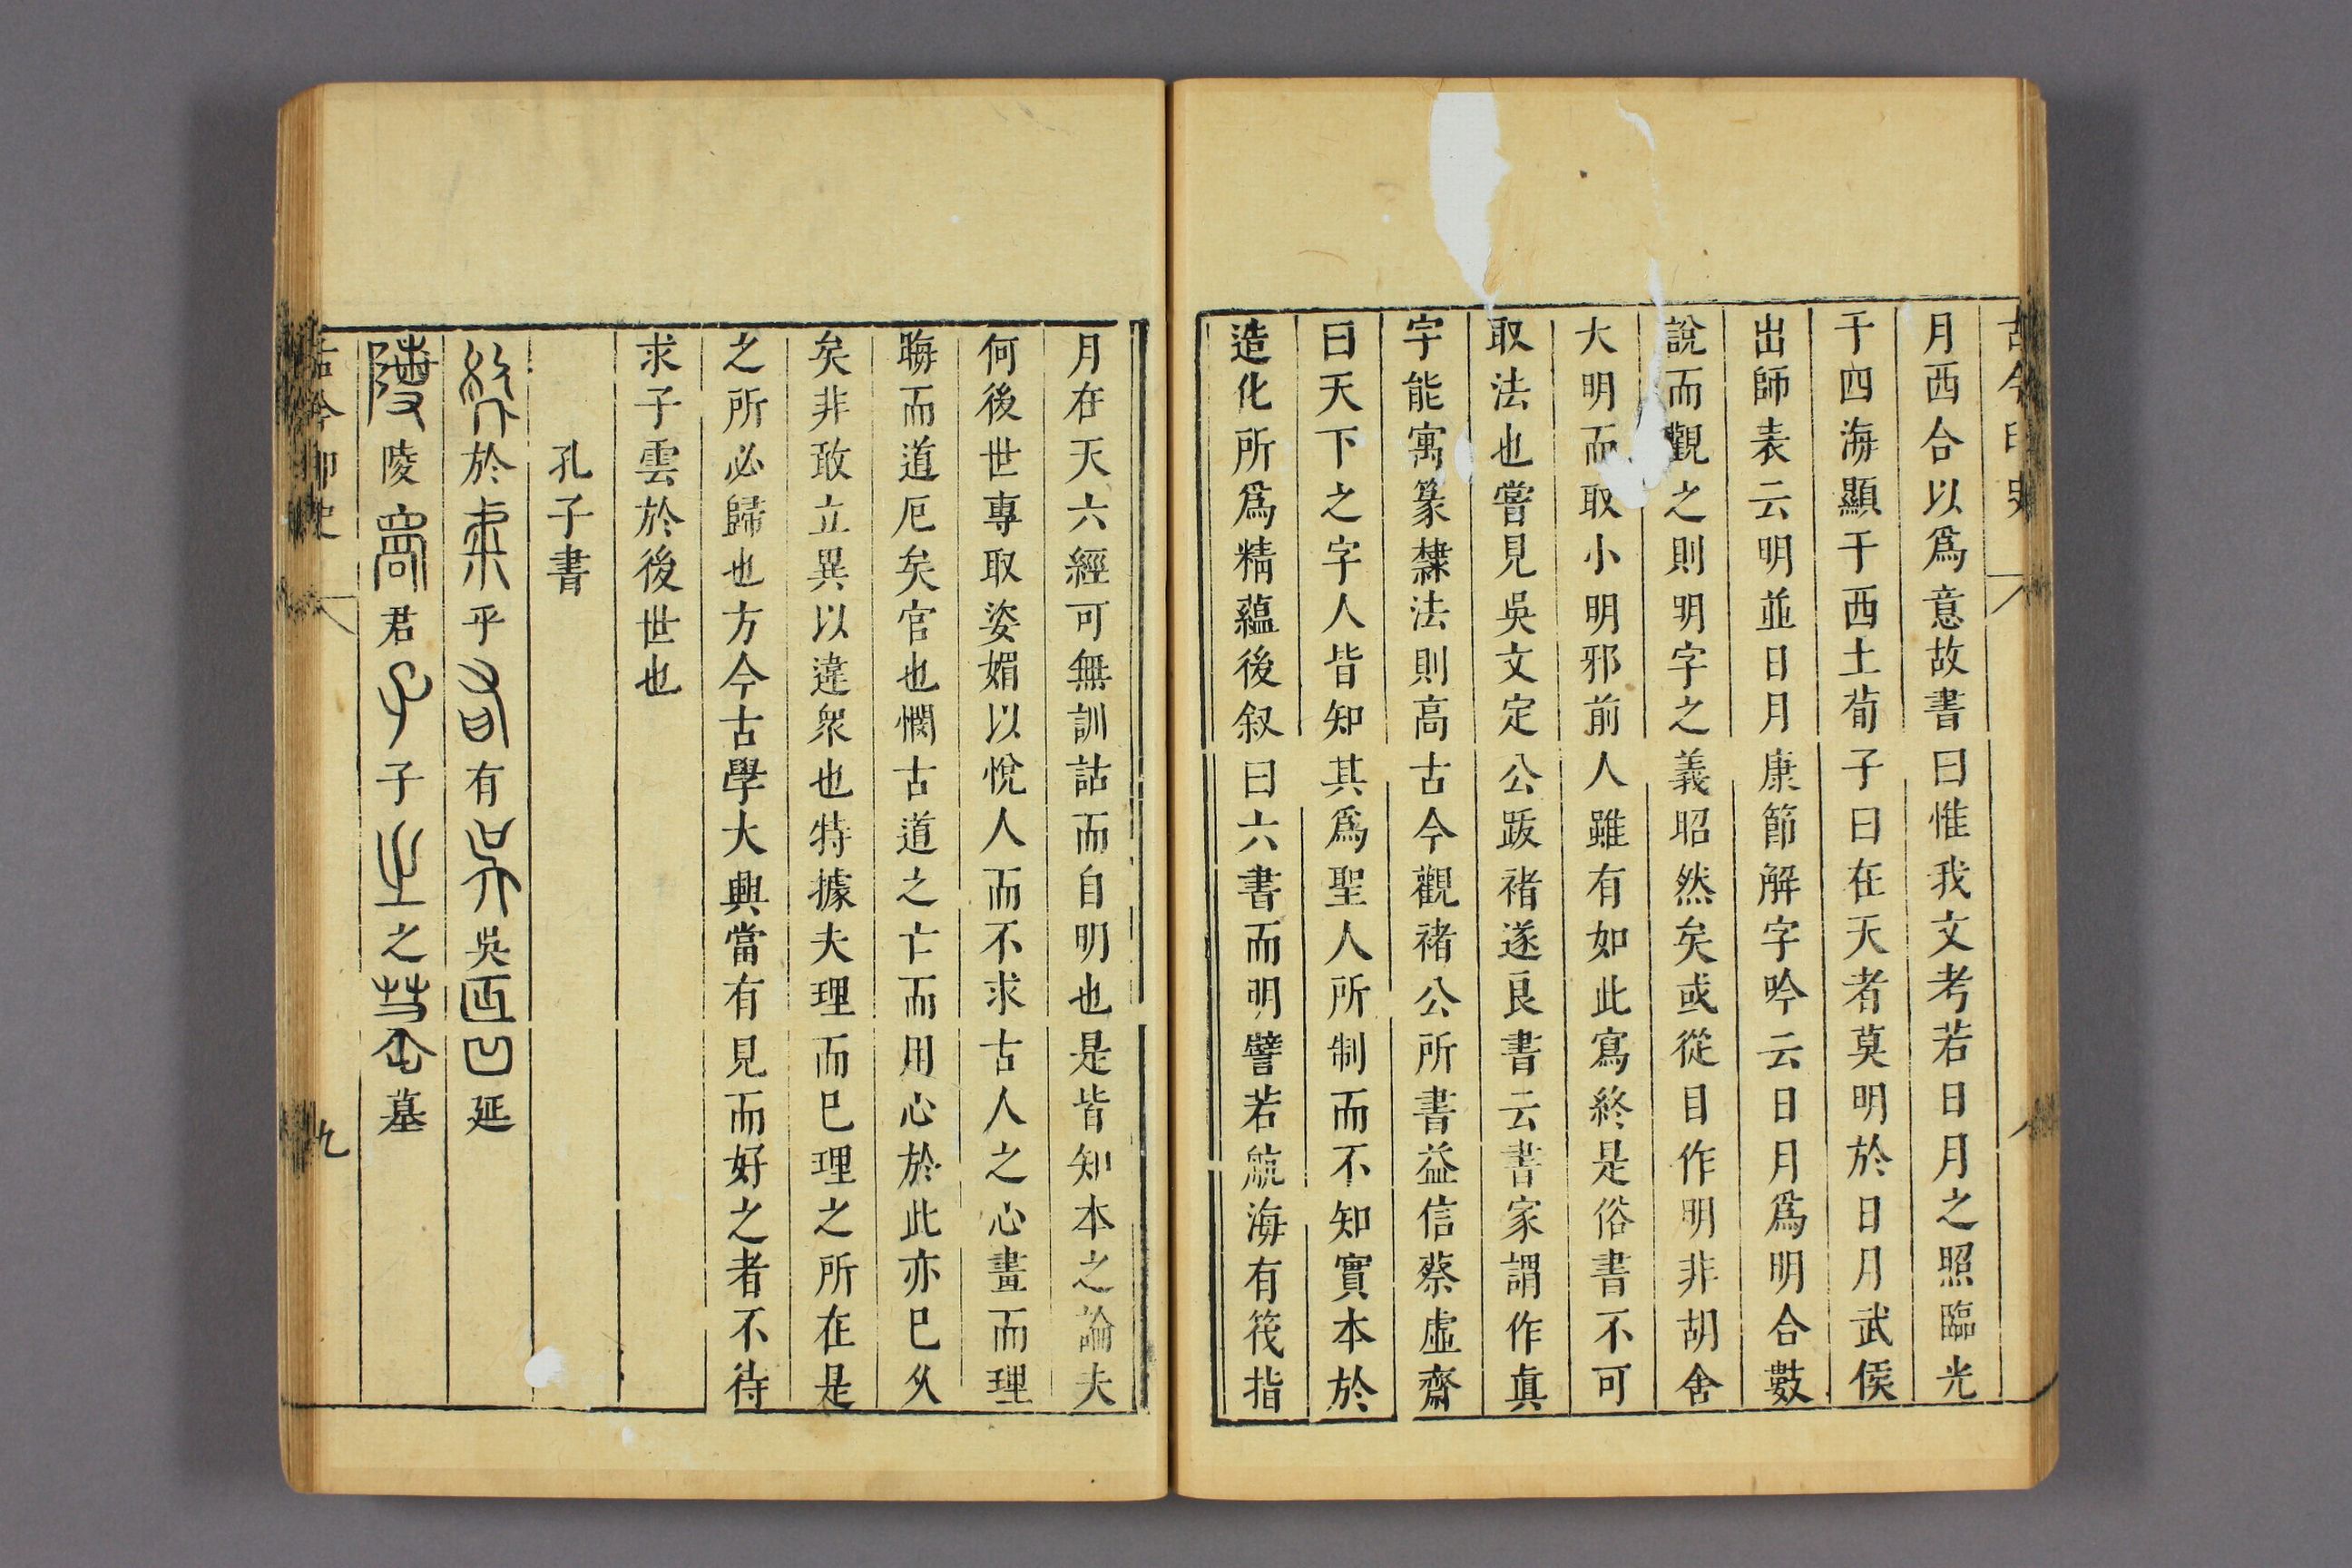 古今印史
月西合以爲意故書曰惟我文考若日月之照臨光
于四海顯于西土荀子曰在天者莫明於日月武侯
出師表云明並日月康節解字吟云日月爲明合數
說而觀之則明字之義昭然矣或從目作明非胡舍
大明而取小明邪前人雖有如此寫終是俗書不可
取法也嘗見吳文定公䟦褚遂良書云書家謂作真
字能寓篆隸法則高古今觀褚公所書益信蔡虛齋
曰天下之字人皆知其爲聖人所制而不知實本於
造化所爲精蘊後叙曰六書而明譬若航海有筏指
月在天六經可無訓詁而自明也是皆知本之論夫
何後世專取姿媚以悅人而不求古人之心畫而理
晦而道厄矣官也憫古道之亡而用心於此亦巳久
矣非敢立異以違衆也特據夫理而巳理之所在是
之所必歸也方今古學大興當有見而好之者不待
求子雲於後世也
孔子書
於乎有吳延
陵君子之墓
古今印史
九